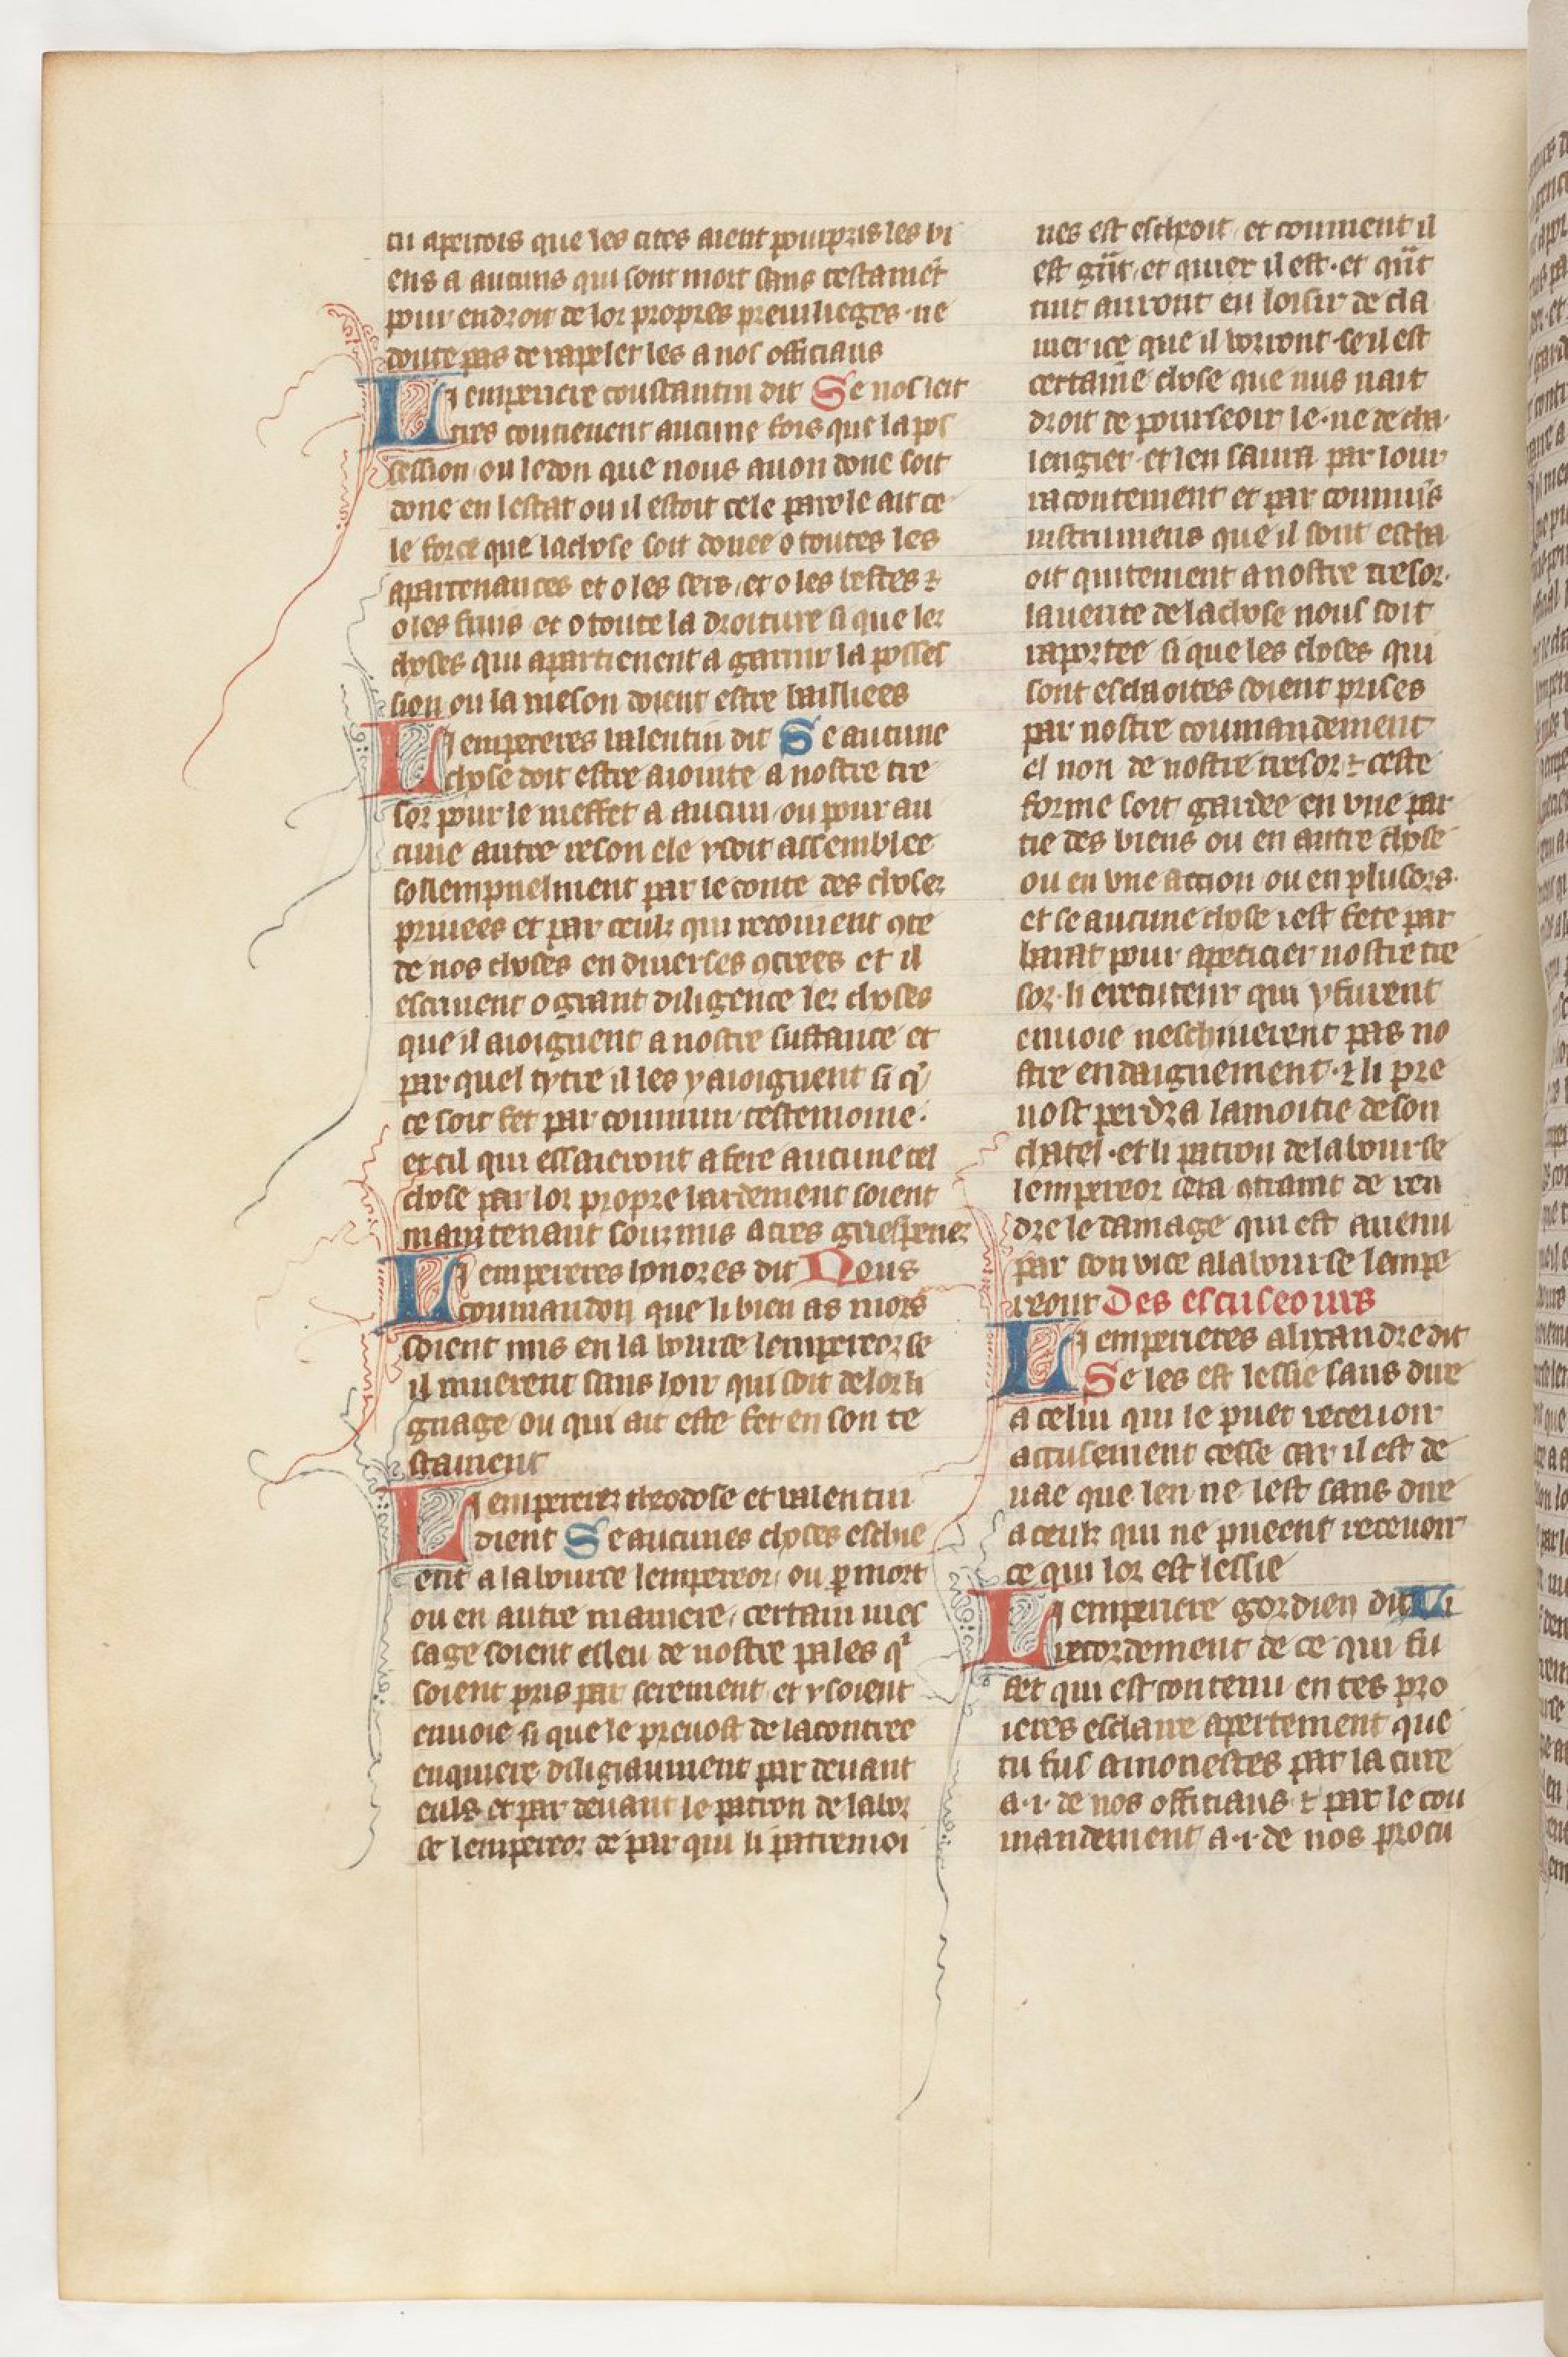 tu aperçois que les cites aient pourpris les bi
ens a aucuns qui sont mort sans testamēt
pour endroit de lor propres preuilieges · ne
doute pas de rapeler les a nos officiaus
Li emperiere constantin dit Se nos let
tres contienent aucune fois que la pos
session ou le don que nous auon done soit
done en lestat ou il estoit cele parole ait ce
le force que la chose soit donee o toutes les
apartenances et o les sers et o les bestes ⁊
o les fruis et o toute la droiture si que les
choses qui apartienent a garnir la posses
sion ou la meson doient estre bailliees
Li empereres valentin dit Se aucune
chose doit estre aiointe a nostre tre
sor pour le meffet a aucun ou pour au
cune autre reson ele y doit assemblee
sollempnelment par le conte des choses
priuees et par ceulz qui recoiuent ꝯte
de nos choses en diuerses ꝯtrees et il
escriuent o grant diligence les choses
que il aioignent a nostre sustance et
par quel tytre il les y aioignent si q̄
ce soit fet par commun testemoine ·
et cil qui essaieront a fere aucune tel
chose par lor propre hardement soient
maintenant sourmis a tres griespenes
Li empereres honores dit Nous
coumandon que li bien as mors
soient mis en la bourse lempereor se
il muerent sans hoir qui soit de lor li
gnage ou qui ait este fet en son te
stament
Li emperere theodose et valentin
dient Se aucunes choses eschie
ent a la bourse lempereor ou p mort
ou en autre maniere certain mes
sage soient esleu de nostre pales qⁱ
soient pris par serement et y soient
enuoie si que le preuost de la contree
enquiere diligiaument par deuant
euls et par deuant le patron de la bor
se lempereor de par qui li patremoi
nes est escheoit et comment il
est gñt et quiex il est · et qñt
tuit auront eu loisir de cla
mer ice que il vorront se il est
certaine chose que nus nait
droit de pourseoir le · ne de cha
lengier · et len saura par lour
racontement et par communs
instrumens que il sont escha
oit quitement a nostre tresor ·
la uerite de la chose nous soit
raportee si que les choses qui
sont eschaoites soient prises
par nostre coumandement
el non de nostre tresor ⁊ ceste
forme soit gardee en vne par
tie des biens ou en autre chose
ou en vne action ou en plusors ·
et se aucune chose i est fete par
barat pour apeticier nostre tre
sor · li executeur qui y furent
enuoie neschiuerent pas no
stre endaignement · ⁊ li pre
uost perdra la moitie de son
chatel · et li patron de la bourse
lempereor sera ꝯtraint de ren
dre le damage qui est auenu
par son vice a la bourse lempe
reour Des escuseours
Li emperieres alixandre dit
Se les est lessie sans dute
a celui qui le puet receuoir
accusement cesse car il est de
uae que len ne lest sans dute
a ceulz qui ne pueent receuoir
ce qui lor est lessie
Li emperiere gordien dit Li
recordement de ce qui fu
fet qui est contenu en tes pro
ieres esclaire apertement que
tu fus amonestes par la cure
a · i · de nos officiaus ⁊ par le cou
mandement a · i · de nos procu